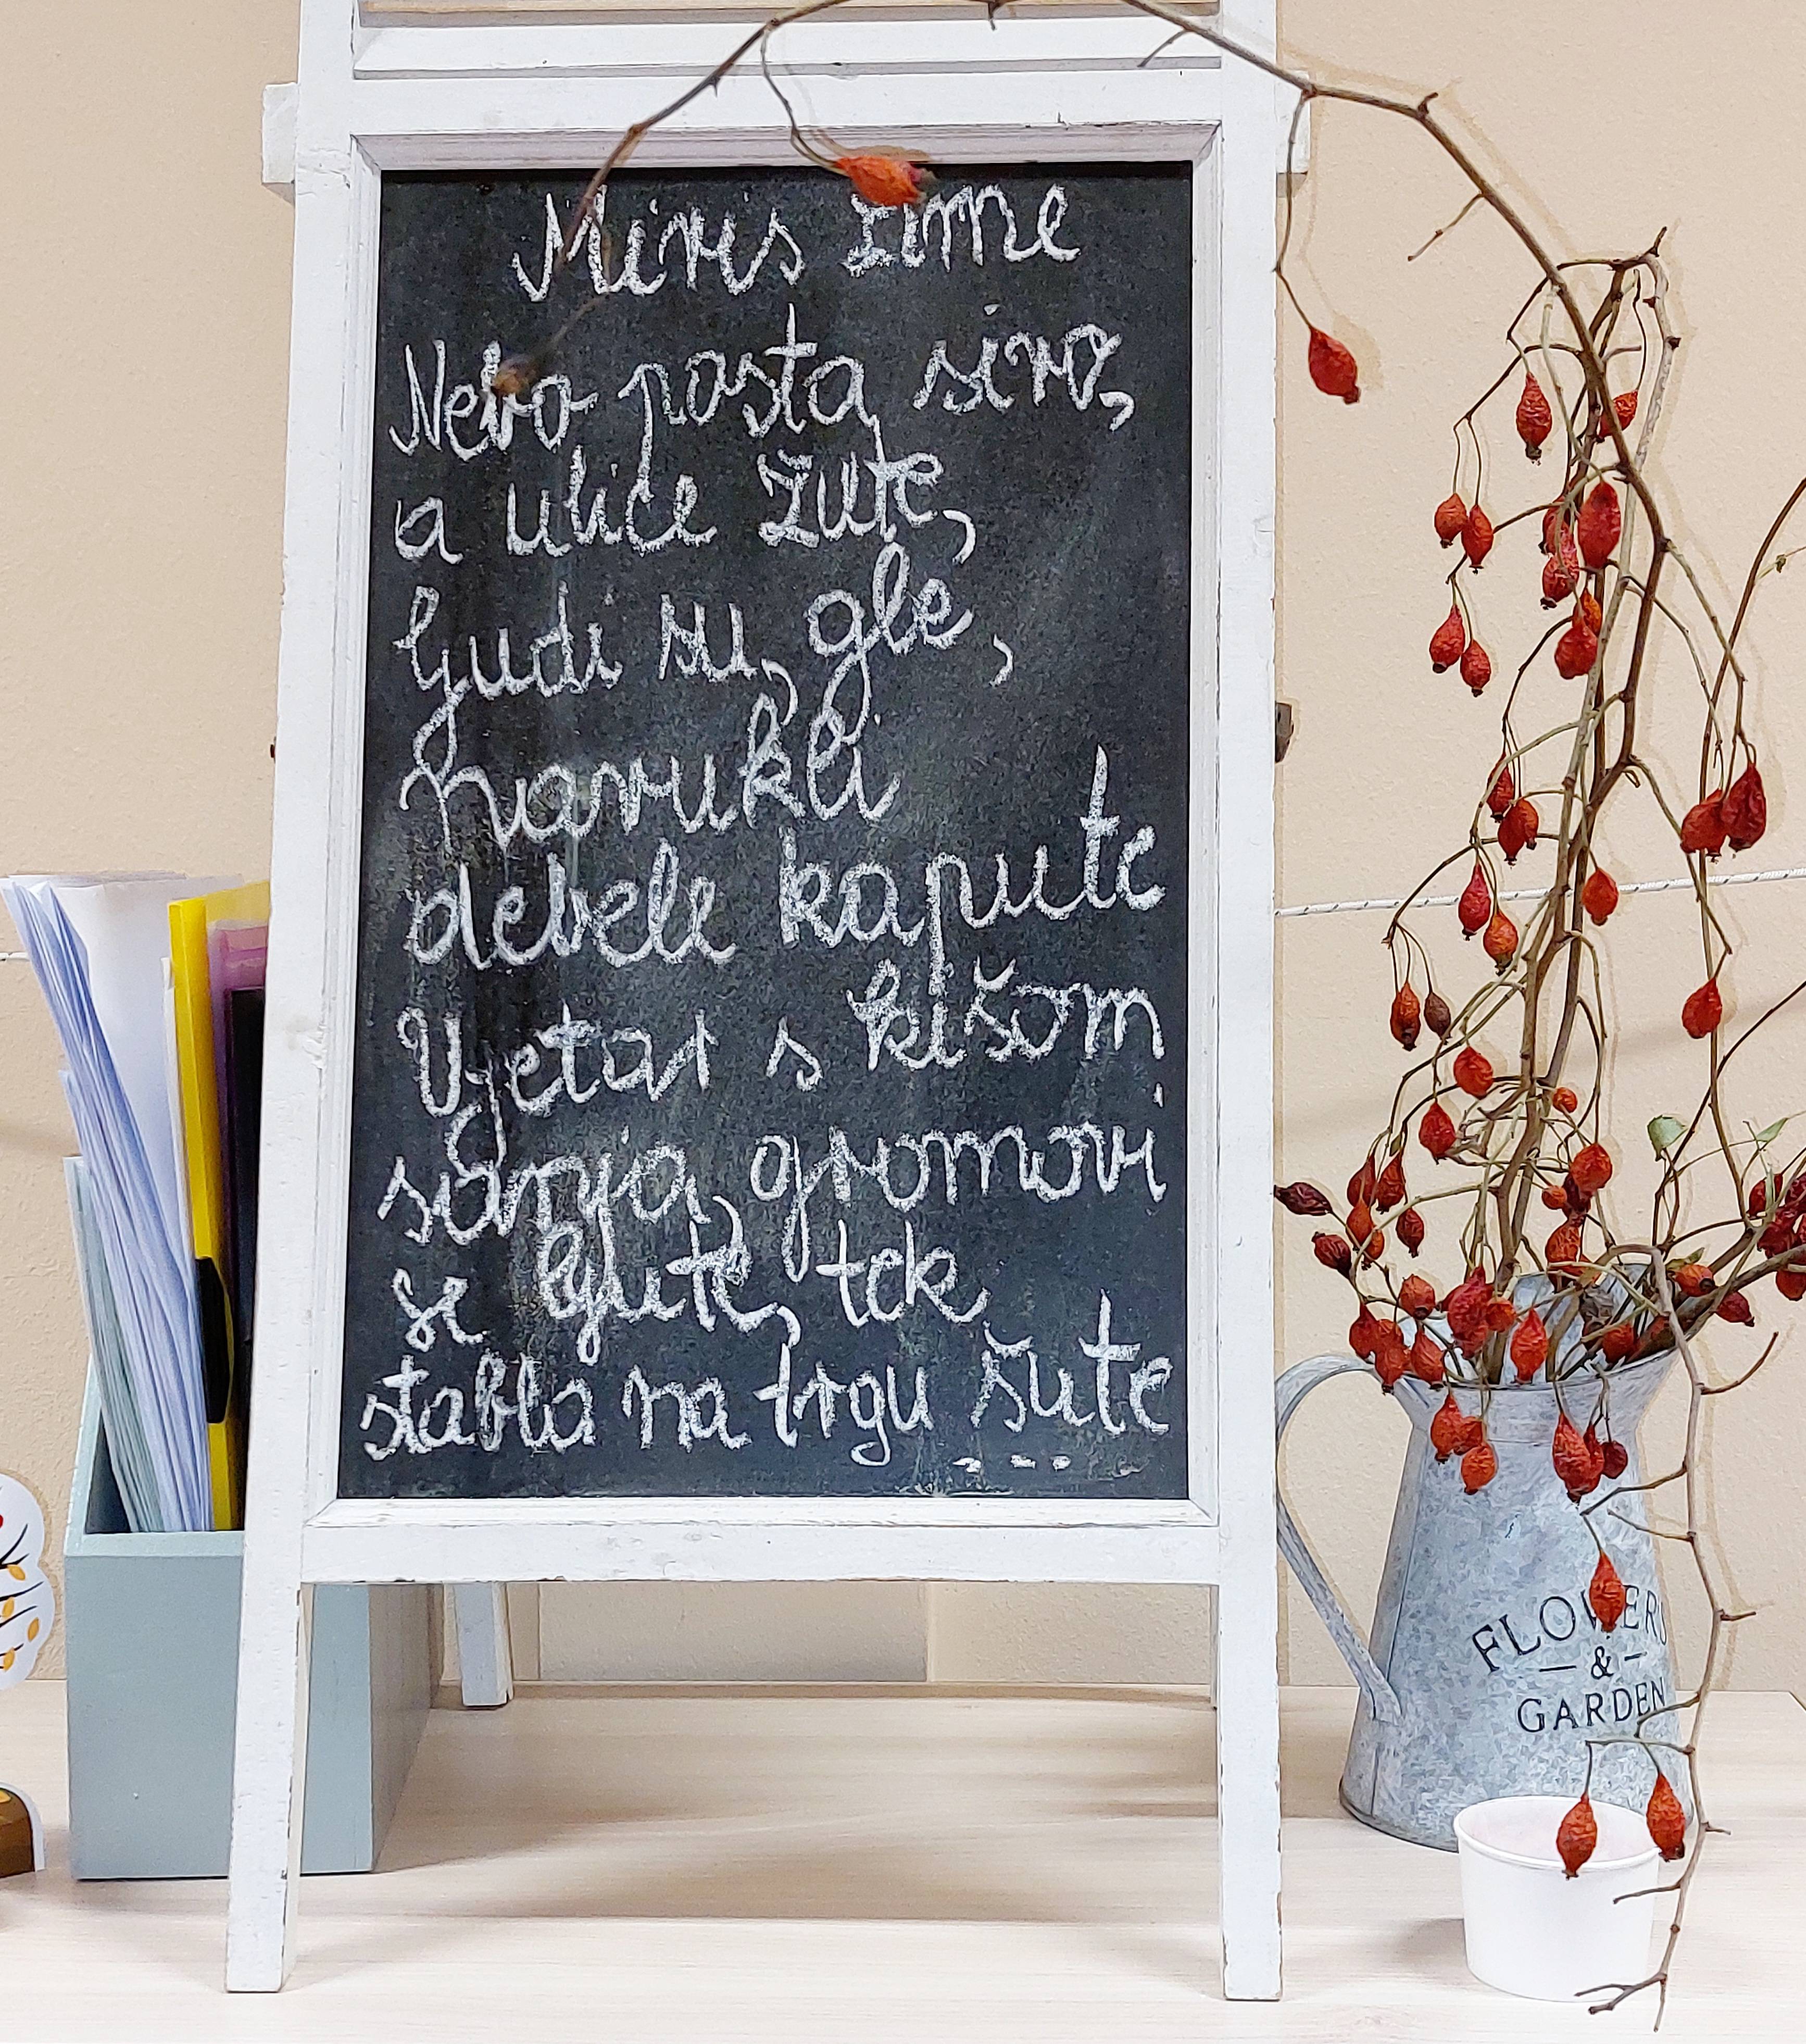 Miris zime
Nebo posta sivo,
a ulice žute,
ljudi su, gle,
navukli
debele kapute
Vjetar s kišom
sanja, gromovi
se ljute, tek
stabla na trgu šute
...
FLOWERS
&
GARDEN